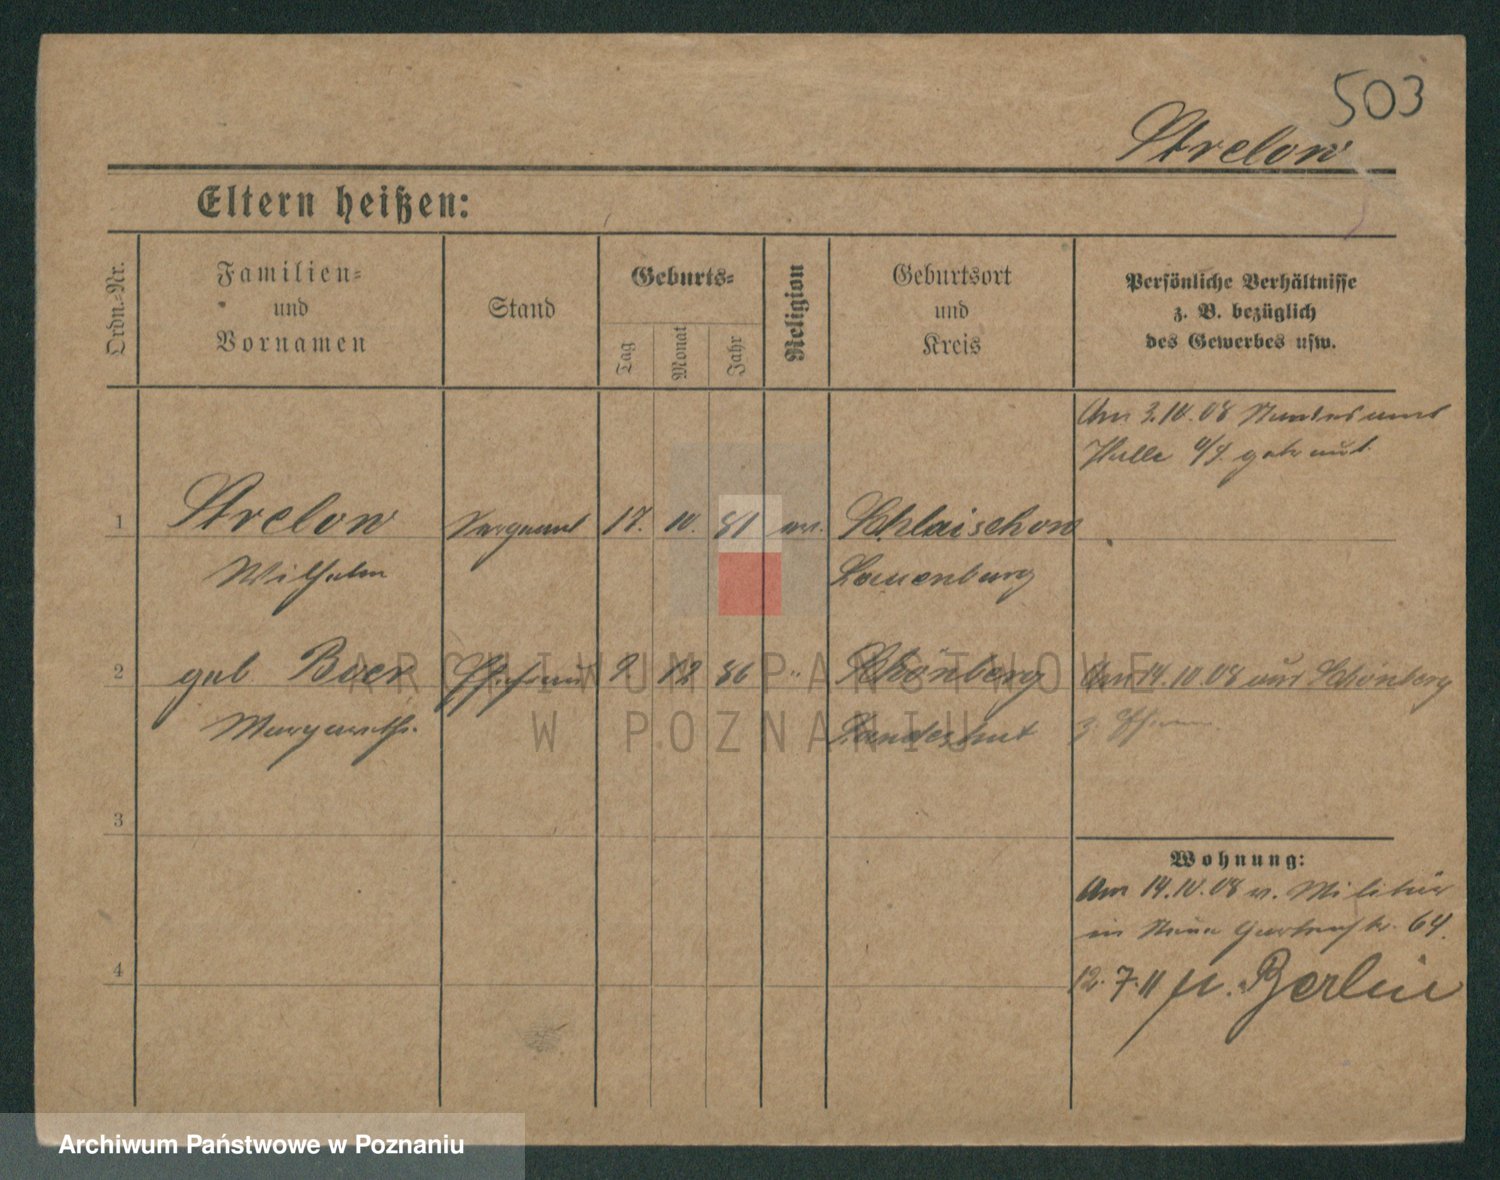 503
Strelow
Eltern heißen:
Ordn.-Nr.
Familien-
und
Vornamen
Stand
Geburts-
Tag
Monat
Jahr
Religion
Geburtsort
und
Kreis
Persönliche Verhältnisse
z. B. bezüglich
des Gewerbes usw.
Am 3.10.08 Standesamt
Halle a/S. getraut.
1 Strelow Sergeant 17. 10. 81 ev. Schlaischow
Wilhelm Lauenburg
2 geb Baer Ehefrau 2 12 86 " Schönberg Am 14.10.08 aus Schönberg
Margarethe. Landeshut z. Ehem.
3
4
Wohnung:
Am 14.10.08 v. Militär
in Neue Gartenstr. 64.
12.7.11 n. Berlin
ARCHIWUM PAŃSTWOWE
W POZNANIU
Archiwum Państwowe w Poznaniu